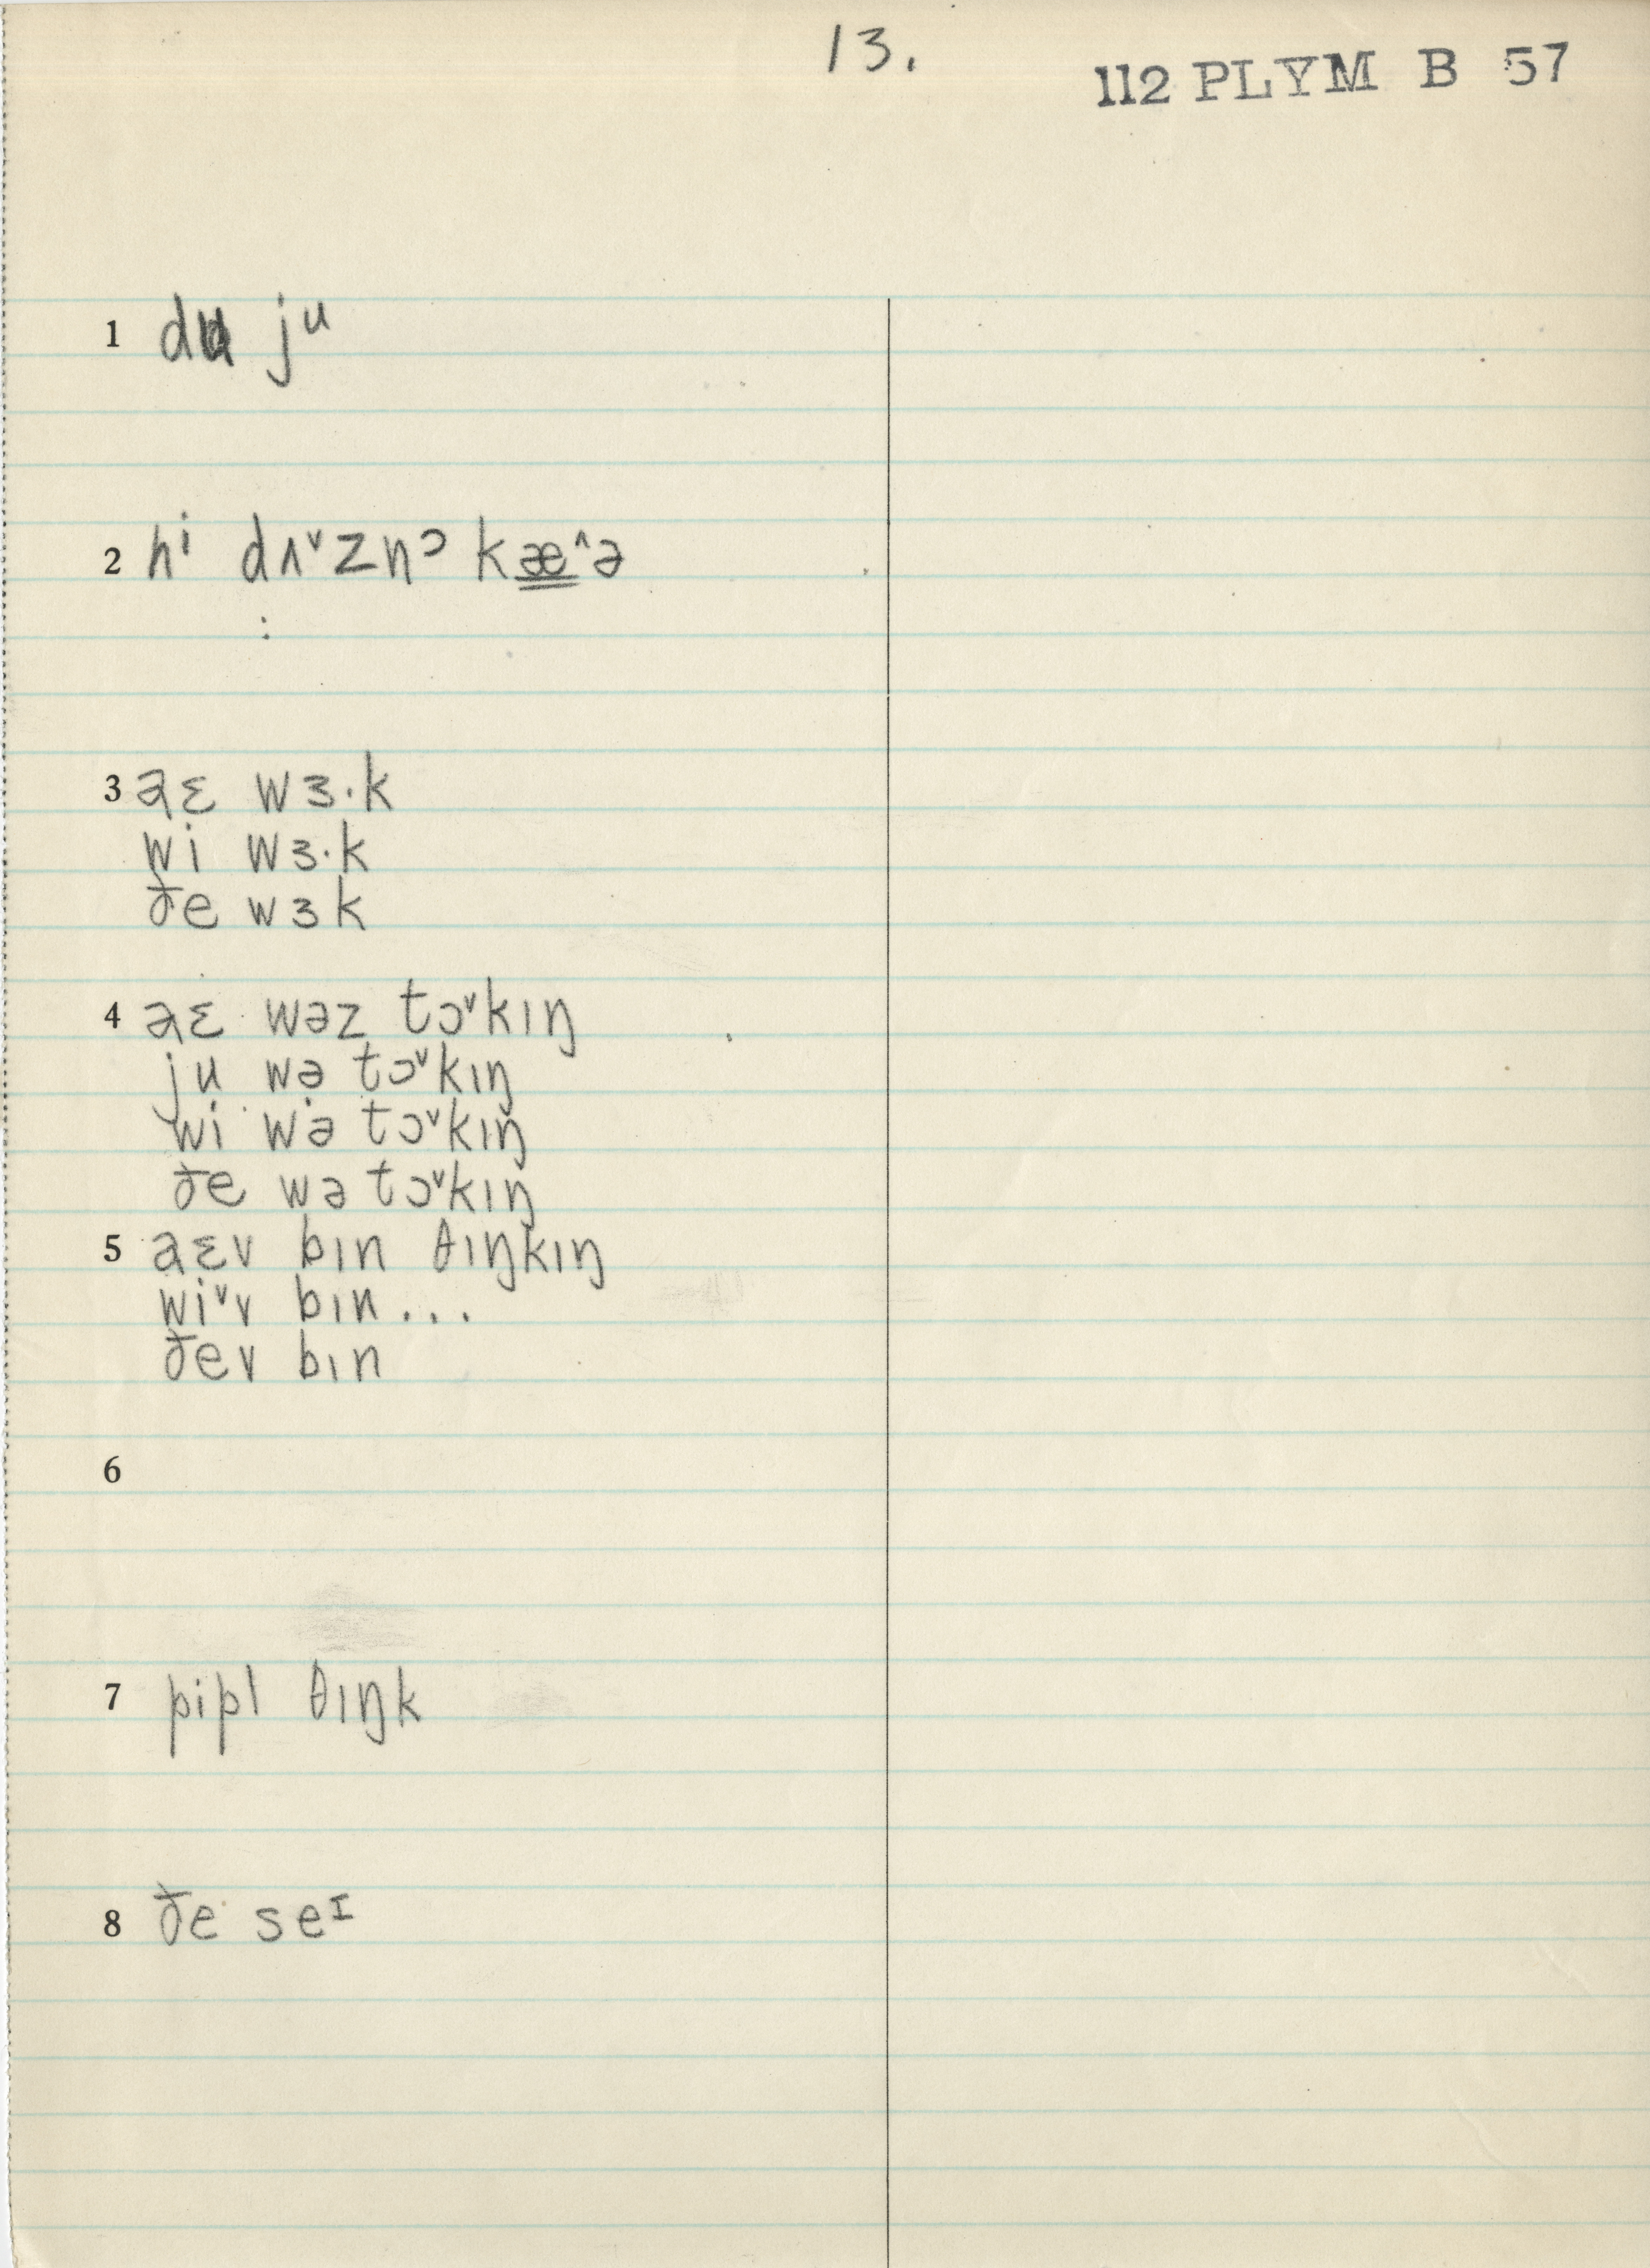 13.
112 PLYM B 57
1 du jᵘ
2 hⁱ dʌ˅znᵓ kæ̳^ə
:
3 aɛ wɜ·k
wi wɜ·k
ðe wɜk
4 aɛ wəz tɔ˅kɪŋ
ju wə tɔ˅kɪŋ
wi wə tɔ˅kɪŋ
ðe wə tɔ˅kɪŋ
5 aɛv bɪn θɪŋkɪŋ
wi˅v bɪn...
ðev bɪn
6
7 pipl θɪŋk
8 ðe seᶦ